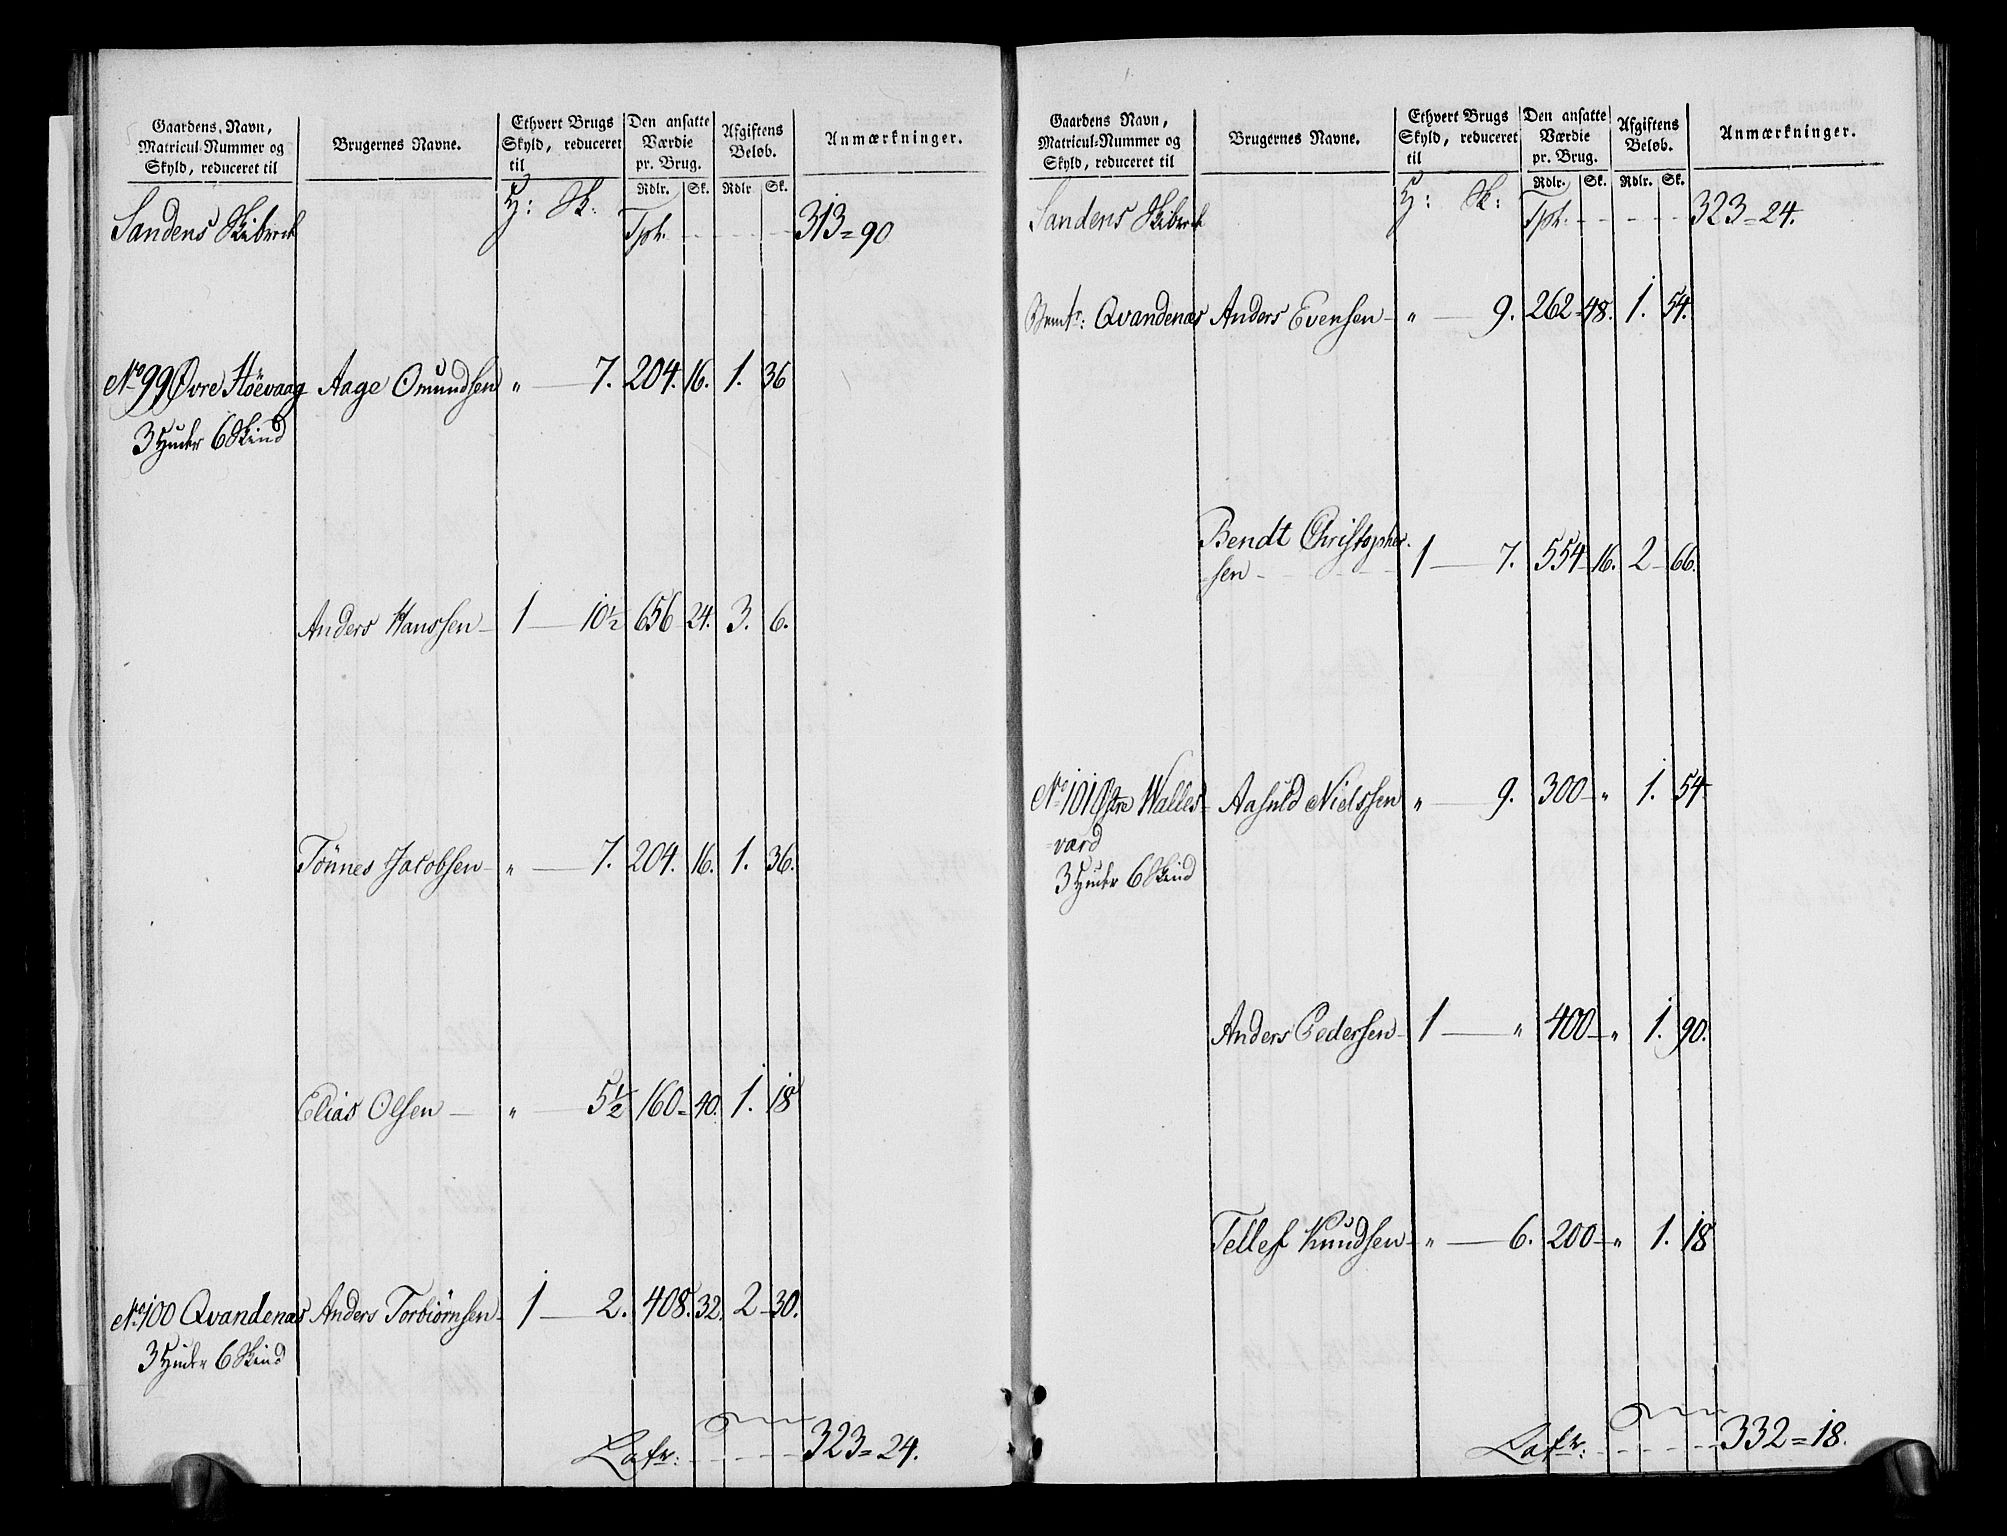 Gaardens Navn, Matricul-Nummer og Skyld, reduceret til | Brugernes Navne. | Ethvert Brugs Skyld, reduceret til | Den ansatte Værdie pr. Brug. | Afgiftens Beløb. | Anmærkninger.
Rdlr. | Sk. | Rdlr. | Sk.
Sandens Skibred | H: Sk: | Tpt. - - - - - 313 = 90
No 99 Øvre Høevaag | Aage Omundsen | " — 7. | 204. | 16. | 1. | 36
3 Huder 6 Skind
Anders Hanssen – | 1 — 10½ | 656 | 24. | 3. | 6.
Tönnes Jacobsen – | " — 7. | 204. | 16. | 1. | 36.
Elias Olsen — | " — 5½ | 160 = | 40. | 1. | 18
No 100 Qvandenæs | Anders Torbiörnsen – | 1 — 2. | 408. | 32. | 2 – | 30.
3 Huder 6 Skind
Lafr: - - - - - 323 = 24.
Gaardens Navn, Matricul-Nummer og Skyld, reduceret til | Brugernes Navne. | Ethvert Brugs Skyld, reduceret til | Den ansatte Værdie pr. Brug. | Afgiftens Beløb. | Anmærkninger.
Rdlr. | Sk. | Rdlr. | Sk.
Sandens Skibred | H: Sk: | Tpt. - - - - - 323 = 24.
Qvandenæs | Anders Evensen – | " — 9. | 262 = | 48. | 1. | 54.
Bendt Christopher-
-sen - - - - | 1 — 7. | 554 – | 16. | 2 – | 66.
No 101 Østre Walles- | Aasuld Nielssen | " — 9. | 300 – | " | 1. | 54
=værd
3 Huder 6 Skind
Anders Pedersen – | 1 — " | 400 – | " | 1. | 90.
Tellef Knudsen – | " — 6. | 200 – | " | 1. | 18
Lafr: - - - - - 332 = 18.